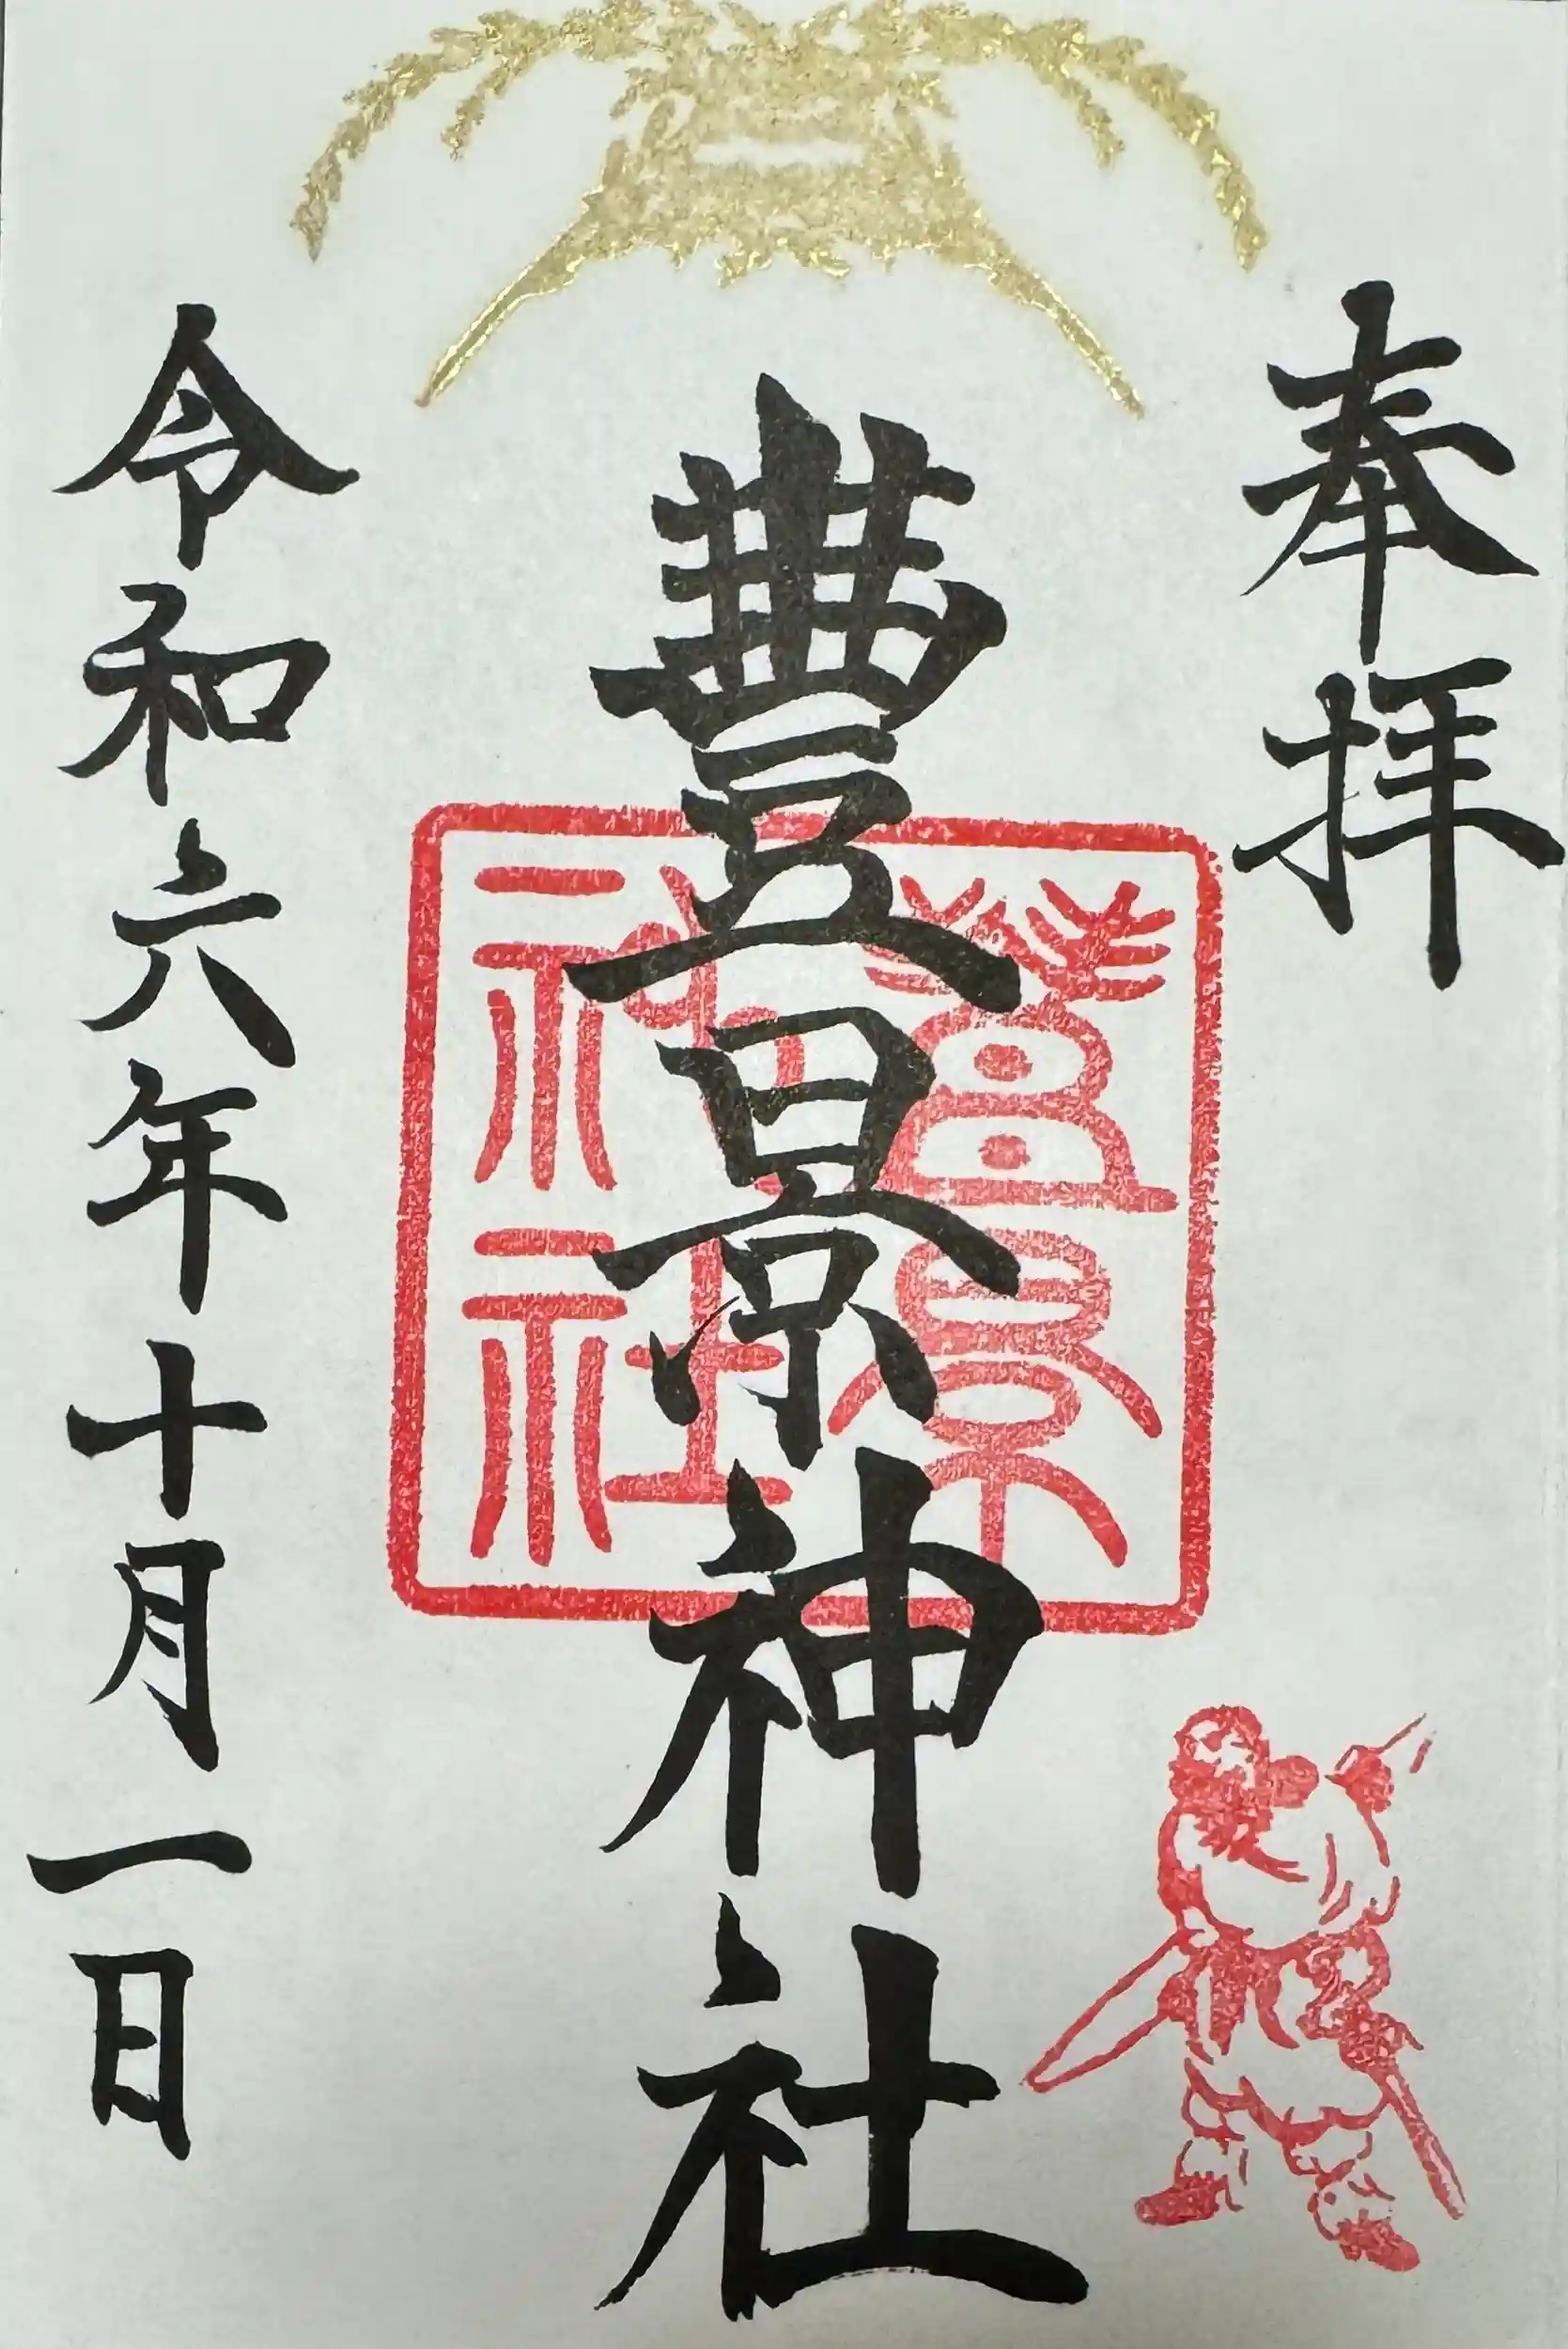 奉拝
豊景神社
豊景神社
令和六年十月一日